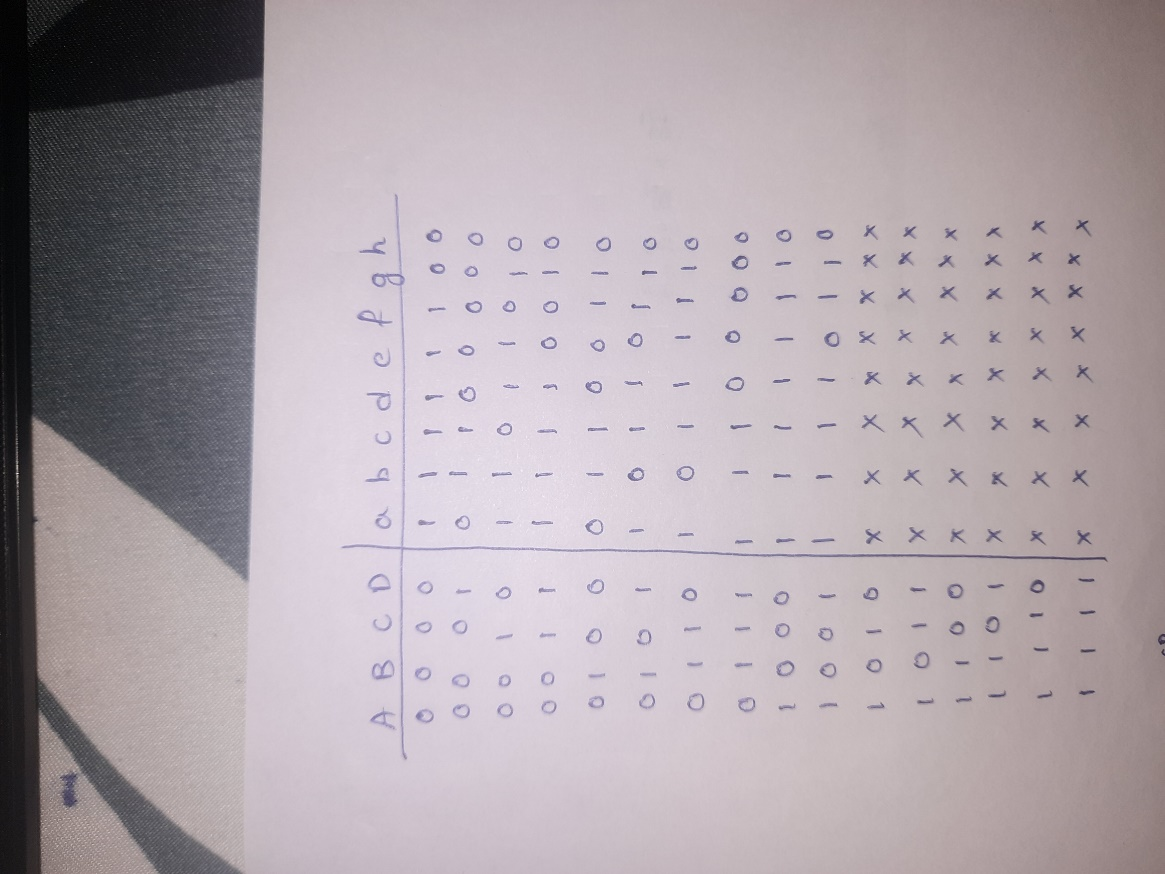 A B C D a b c d e f g h
0 0 0 0 1 1 1 1 1 1 0 0
0 0 0 1 0 1 1 0 0 0 0 0
0 0 1 0 1 1 0 1 1 0 1 0
0 0 1 1 1 1 1 1 0 0 1 0
0 1 0 0 0 1 1 0 0 1 1 0
0 1 0 1 1 0 1 1 0 1 1 0
0 1 1 0 1 0 1 1 1 1 1 0
0 1 1 1 1 1 1 0 0 0 0 0
1 0 0 0 1 1 1 1 1 1 1 0
1 0 0 1 1 1 1 1 0 1 1 0
1 0 1 0 x x x x x x x x
1 0 1 1 x x x x x x x x
1 1 0 0 x x x x x x x x
1 1 0 1 x x x x x x x x
1 1 1 0 x x x x x x x x
1 1 1 1 x x x x x x x x